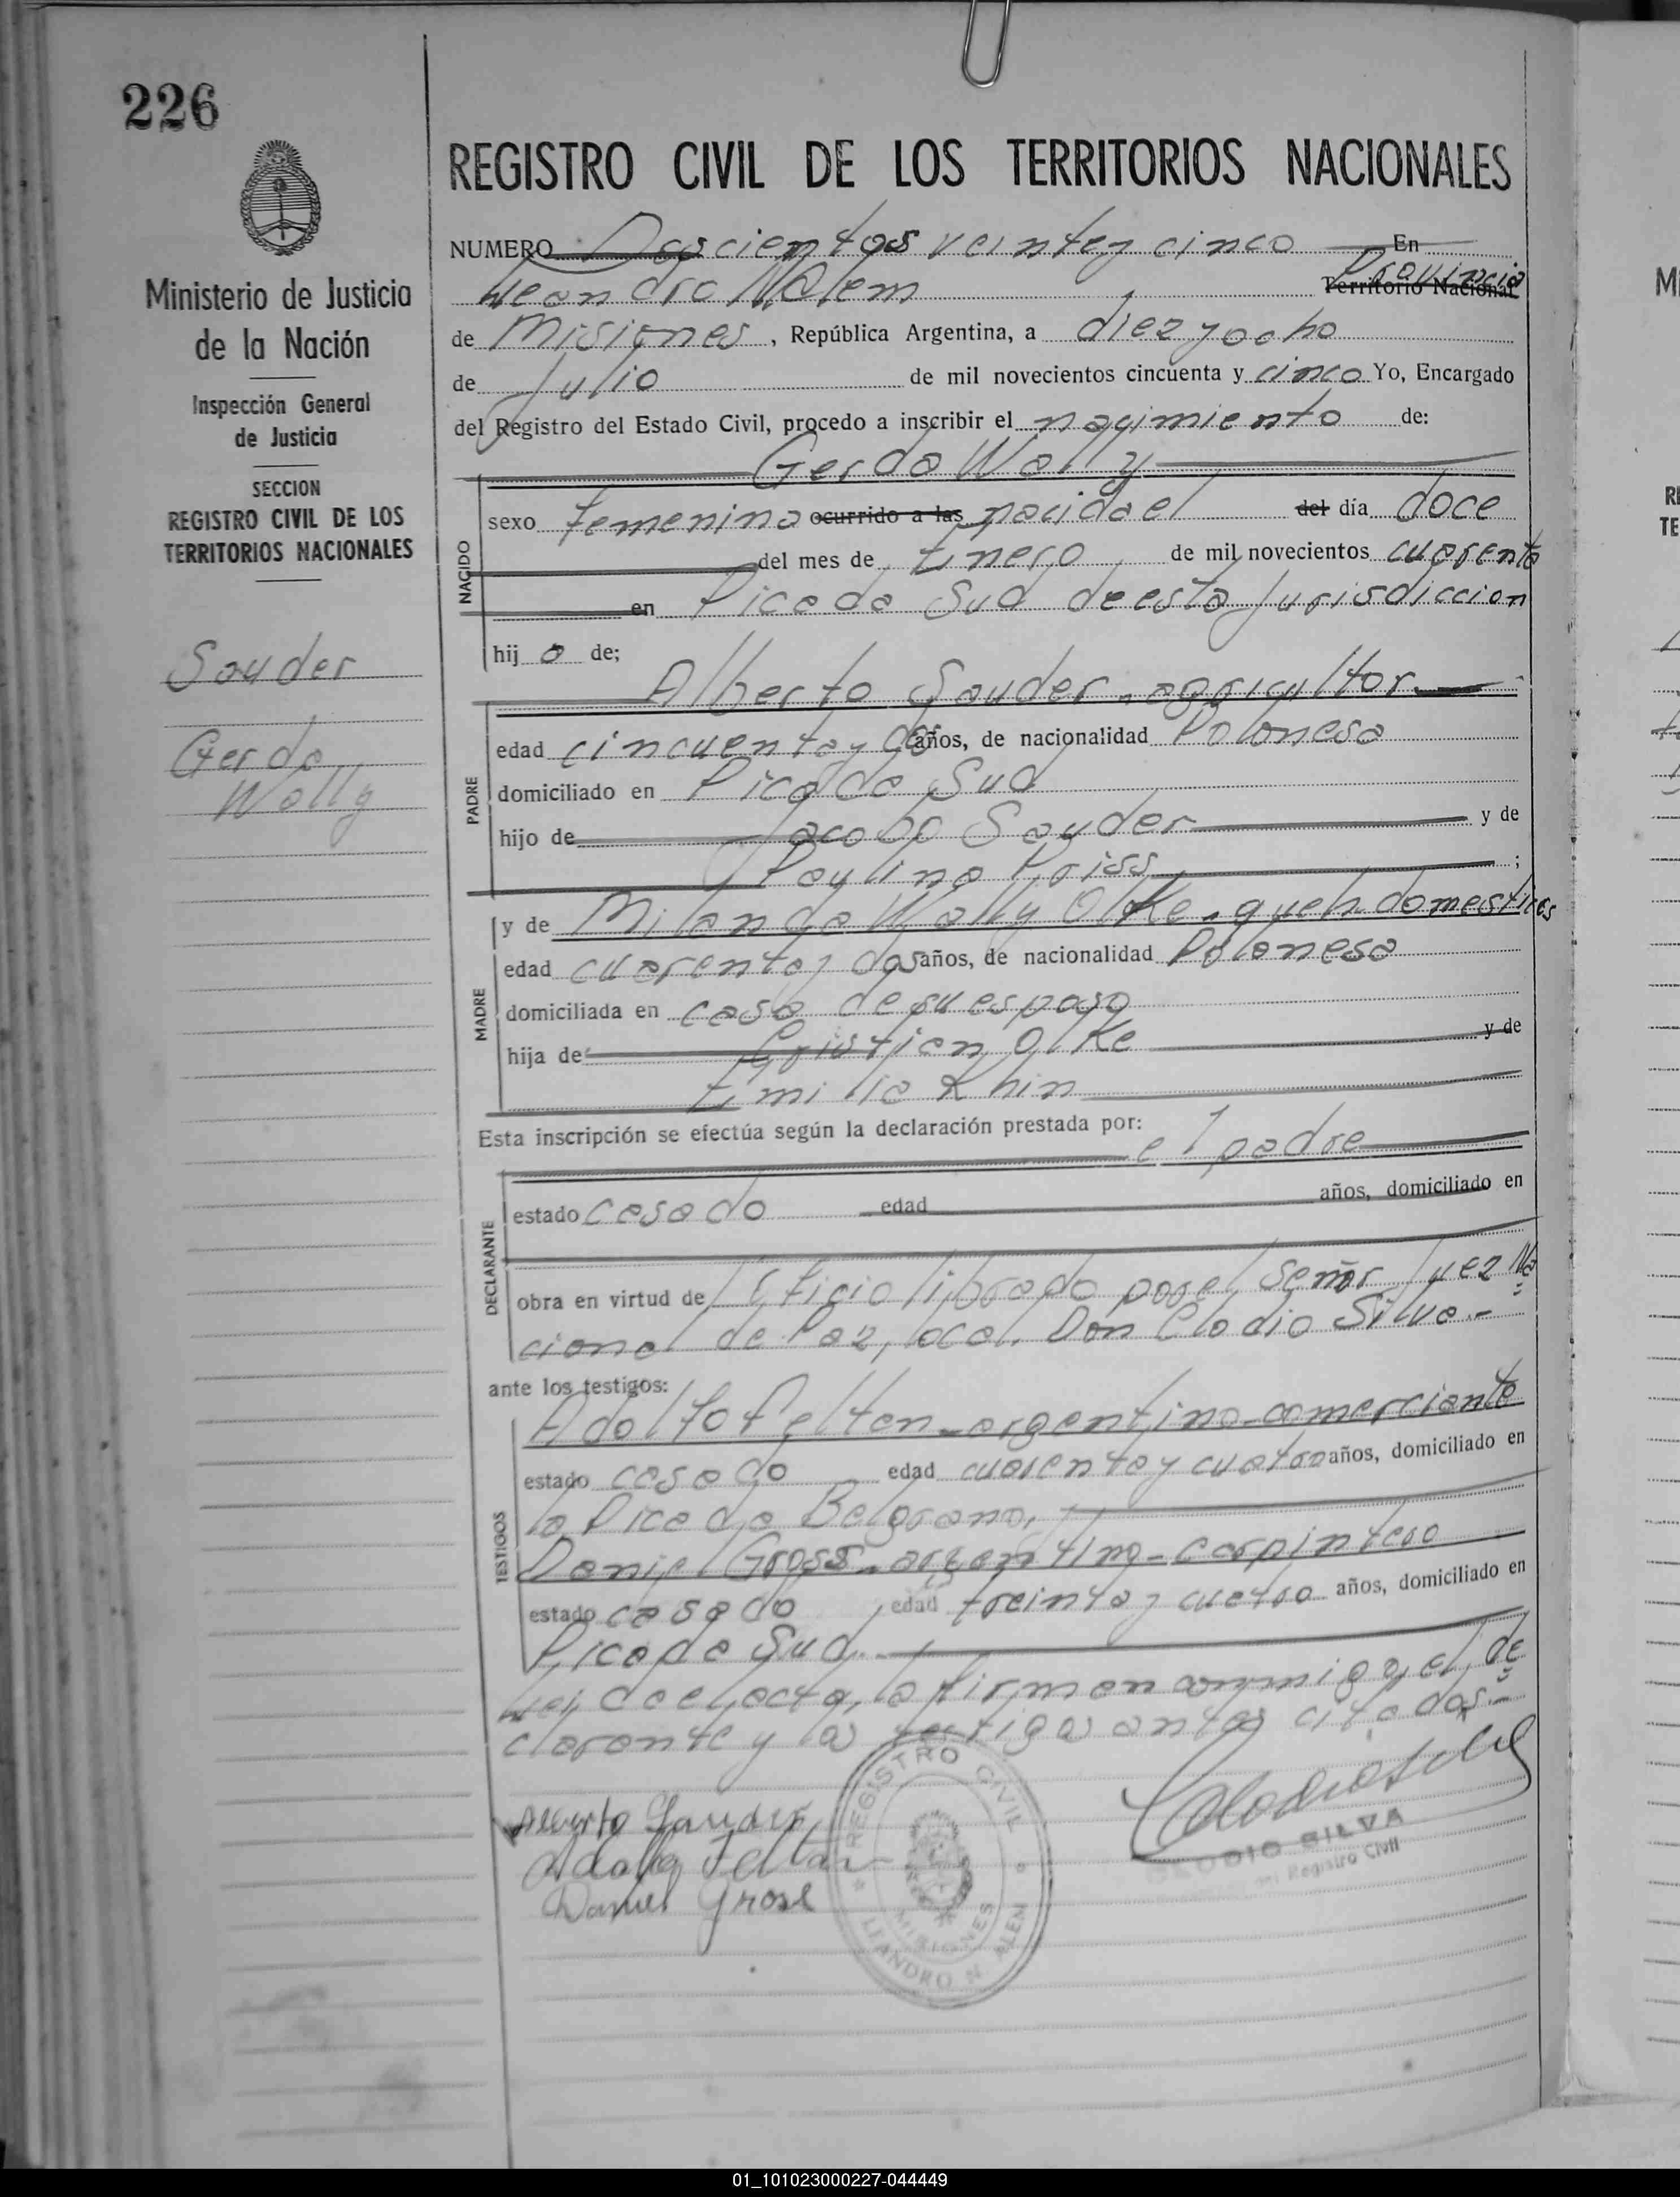 226
Ministerio de Justicia
de la Nación
Inspección General
de Justicia
SECCION
REGISTRO CIVIL DE LOS
TERRITORIOS NACIONALES
Sauder
Gerda
Wally
REGISTRO CIVIL DE LOS TERRITORIOS NACIONALES
NUMERO Doscientos veintey cinco En
Leandro N Alem Territorio Nacional Provincia
de Misiones, República Argentina, a diez y ocho
de Julio de mil novecientos cincuenta y cinco Yo, Encargado
del Registro del Estado Civil, procedo a inscribir el nacimiento de:
Gerda Wally
NACIDO
sexo femenino ocurrido a las nacida el del día doce
del mes de Enero de mil novecientos cuarenta
en Picada Sud de esta Jurisdiccion
hij a de;
PADRE
Alberto Sauder - agricultor
edad cincuentay dos años, de nacionalidad Polonesa
domiciliado en Picada Sud
hijo de Jacobo Sauder y de
Paulina Kriss;
MADRE
y de Milanda Wally Olke - queh. domesticos
edad cuarentay dos años, de nacionalidad Polonesa
domiciliada en casa de su esposo
hija de Cristian Olke y de
Emilia Khin
Esta inscripción se efectúa según la declaración prestada por:
el padre
DECLARANTE
estado casado edad años, domiciliado en
obra en virtud de Oficio librado por el Señor Juez Na
cional de Paz, local. Don Clodio Silva.-
ante los testigos:
TESTIGOS
Adolfo Felten - argentino - comerciante
estado casado edad cuarentay cuatro años, domiciliado en
la Picada Belgrano.
Daniel Gross - argentino - carpintero
estado casado edad treintay cuatro años, domiciliado en
Picada Sud.
Leida el acta, la firman conmigo, el de
clarante y los testigos antes citados.-
Alberto Sauder
Adolfo Felten
Daniel Gross
REGISTRO CIVIL
MISIONES
LEANDRO N ALEM
CLODIO SILVA
Registro Civil
01_101023000227-044449